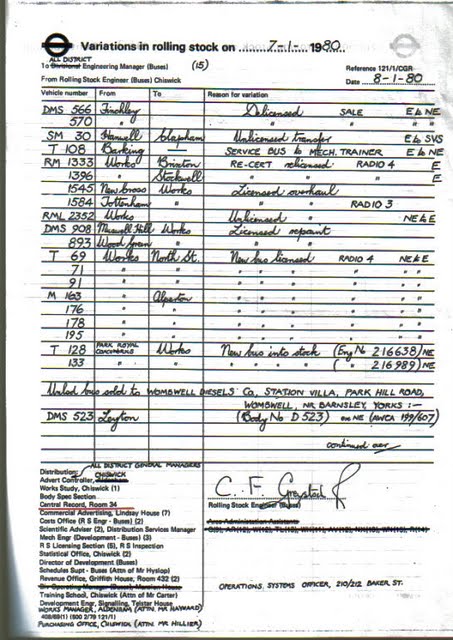 Variations in rolling stock on 7-1- 1980
ALL DISTRICT (15)
To Divisional Engineering Manager (Buses) Reference 121/1/CGR
From Rolling Stock Engineer (Buses) Chiswick Date 8-1-80
Vehicle number From To Reason for variation
DMS 566 Finchley Delicensed SALE E to NE
570 " " " " "
SM 30 Hanwell Clapham Unlicensed transfer E to SVS
T 108 Barking " SERVICE BUS to MECH. TRAINER E to NE
RM 1333 Works Brixton RE-CERT relicensed RADIO 4 E
1396 " Stockwell " " E
1545 New Cross Works Licensed overhaul
1584 Tottenham " " " RADIO 3
RML 2352 Works Unlicensed NE to E
DMS 908 Muswell Hill Works Licensed repaint
893 Wood Green " " "
T 69 Works North St. New bus licensed RADIO 4 NE to E
71 " " " " " " " "
91 " " " " " " " "
M 163 " Alperton " " " " " "
176 " " " " " " " "
178 " " " " " " " "
195 " " " " " " " "
T 128 PARK ROYAL Works New bus into stock (Eng No 216658) NE
133 " " " " " ( " 216989) NE
bus sold to WOMBWELL DIESELS Co, STATION VILLA, PARK HILL ROAD,
WOMBWELL, NR. BARNSLEY, YORKS :-
DMS 523 Leyton (Body No D 523) ex NE (AWCA 199/607)
continued over
Distribution: ALL DISTRICT GENERAL MANAGERS
Advert Controller, CHISWICK
Works Study, Chiswick (1)
Body Spec Section
Central Record, Room 34
Commercial Advertising, Lindsay House (7)
Costs Office (R S Engr - Buses) (2)
Scientific Adviser (2), Distribution Services Manager
Mech Engr (Development - Buses) (3)
R S Licensing Section (5), R S Inspection
Statistical Office, Chiswick (2)
Director of Development (Buses)
Schedules Supt - Buses (Attn of Mr Hyslop)
Revenue Office, Griffith House, Room 432 (2)
Training School, Chiswick (Attn of Mr Carter)
Development Engr, Signalling, Telstar House
WORKS MANAGER, ALDENHAM (ATTN. MR HAYWARD)
408/69(1) (500 3/79 121/1)
PURCHASING OFFICE, CHISWICK (ATTN. MR HILLIER)
C. F.
Rolling Stock Engineer (Buses)
Area Administration Assistants
OPERATIONS, SYSTEMS OFFICER, 210/212 BAKER ST.